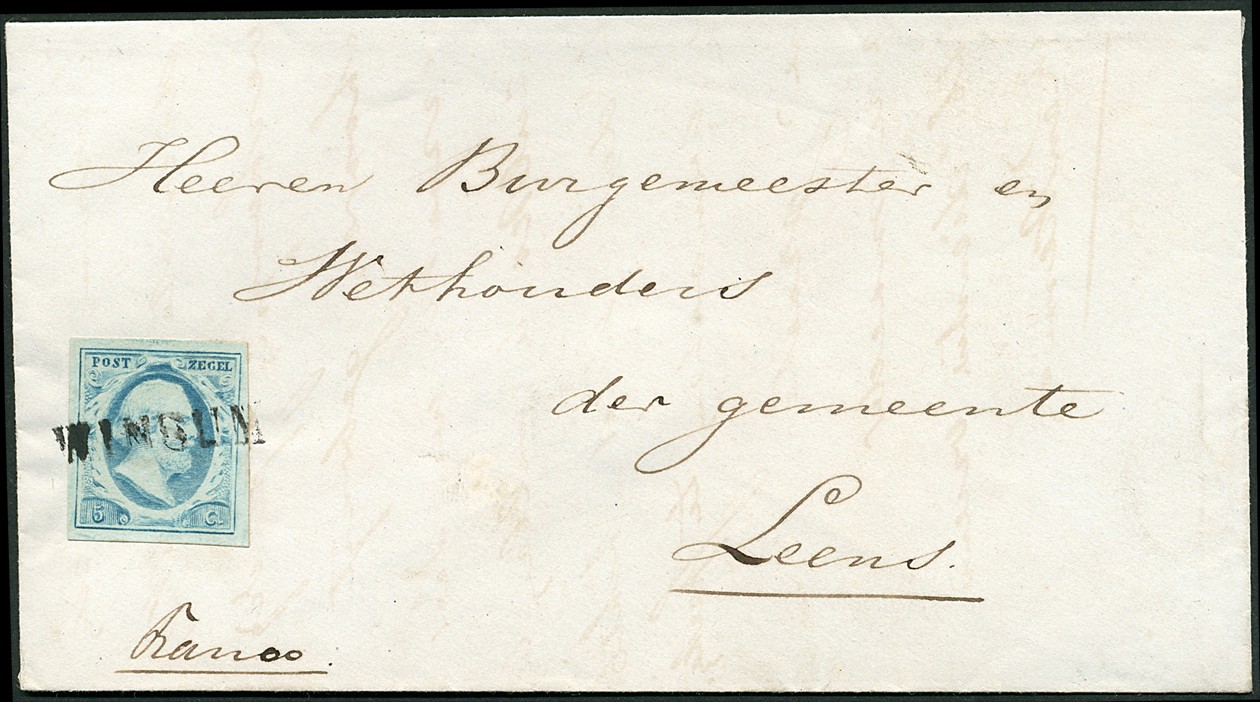 Heeren Burgemeester en
Wethouders
der gemeente
Leens.
POST ZEGEL
WINSUM
5 C.
Franco.